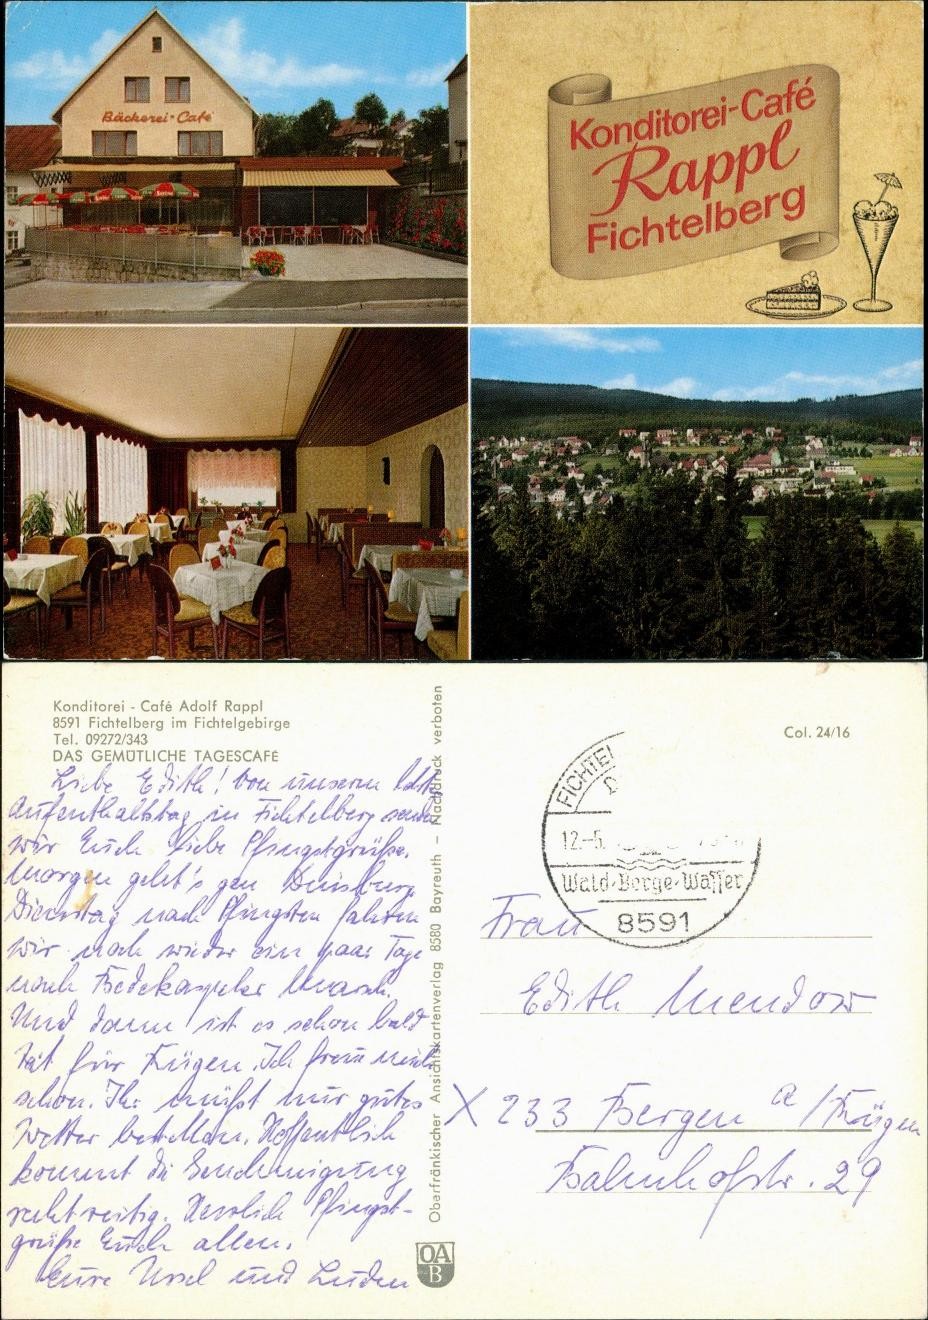 Bäckerei-Café
Konditorei-Café
Rappl
Fichtelberg
Konditorei - Café Adolf Rappl
8591 Fichtelberg im Fichtelgebirge
Tel. 09272/343
DAS GEMÜTLICHE TAGESCAFÉ
Liebe Edith! Von unserem
Aufenthaltstag in Fichtelberg senden
wir Euch liebe Pfingstgrüße.
Morgen geht's gen Duisburg.
Dienstag nach Pfingsten fahren
wir noch wieder ein paar Tage
nach Bedekaspeler Marsch.
Und dann ist es schon bald
Zeit für Rügen. Ich freu mich
schon. Ihr müßt nur gutes
Wetter bestellen. Hoffentlich
kommt die Genehmigung
rechtzeitig. Herzlich Pfingst-
grüße Euch allen.
Eure Ursel und
Oberfränkischer Ansichtskartenverlag 8580 Bayreuth – Nachdruck verboten
OA
B
Col. 24/16
FICHTEL
12.-5.
Wald-Berge-Wasser
8591
Frau
Edith Mendow
X 233 Bergen a/Rügen
Bahnhofstr. 29